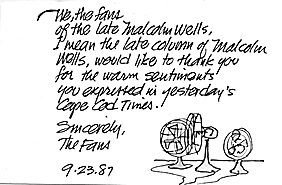 We, the fans
of the late Malcolm Wells,
I mean the late column of Malcolm
Wells, would like to thank you
for the warm sentiments
you expressed in yesterday's
Cape Cod Times.
Sincerely,
The Fans
9.23.87